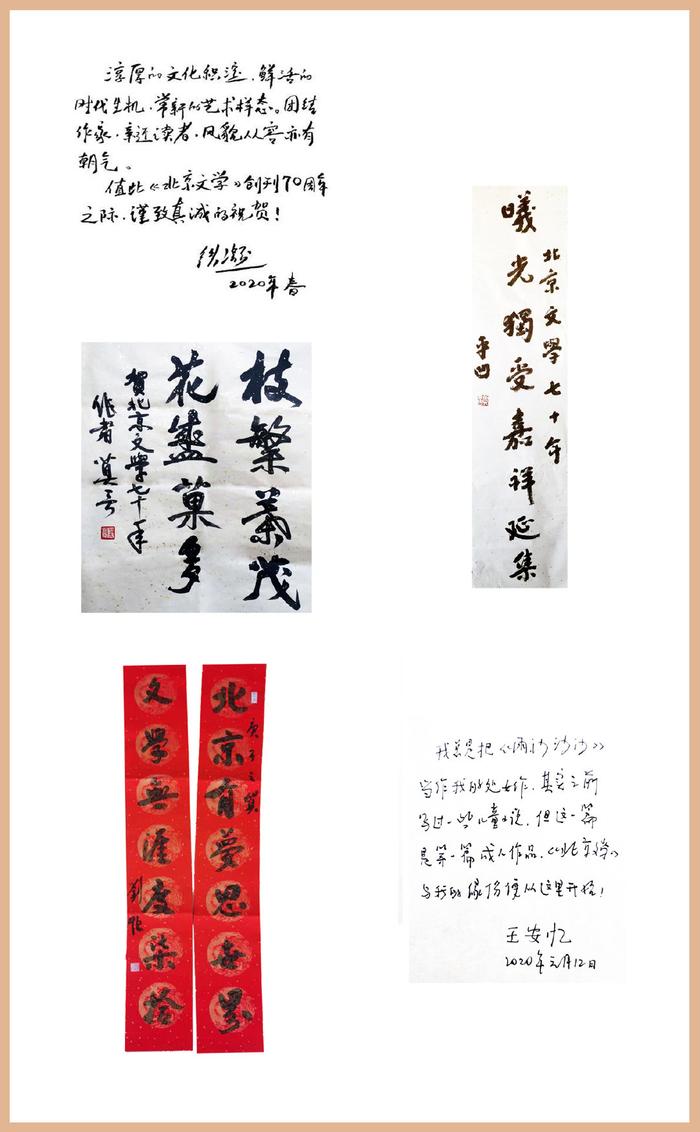 淳厚的文化积淀，鲜活的
时代生机，常新的艺术样态。团结
作家，亲近读者，风貌从容亦有
朝气。
值此《北京文学》创刊70周年
之际，谨致真诚的祝贺！
铁凝
2020年春
曦光獨受嘉祥延集
北京文學七十年
平凹
枝繁葉茂
花盛菓多
賀北京文學七十年
作者 莫言
北京有夢思無界
庚子之賀
文學無涯度柒拾
劉恒
我总是把《雨，沙沙沙》
当作我的处女作，其实之前
写过一些儿童小说，但这一篇
是第一篇成人作品，《北京文学》
与我的缘份便从这里开始！
王安忆
2020年元月12日